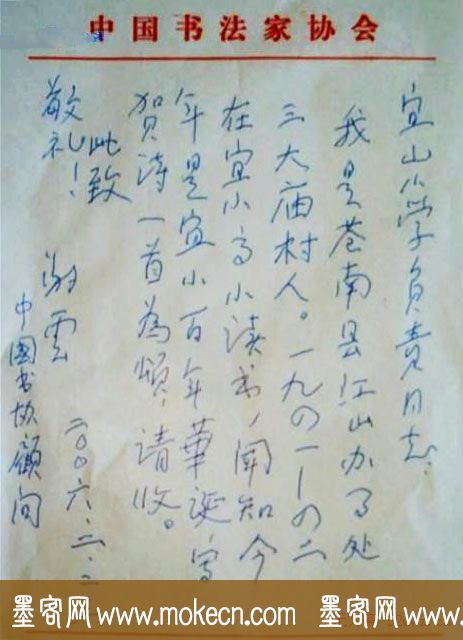 中国书法家协会
宜山小学负责同志：
我是苍南县江山办事处
三大庙村人。一九四一—四二
在宜小高小读书，闻知今
年是宜小百年華诞，写
贺诗一首為頌，请收。
此致
敬礼！
谢雲 二〇〇六.二.
中国书协顾问
墨客网 www.mokecn.com 墨客网 www.mokecn.com